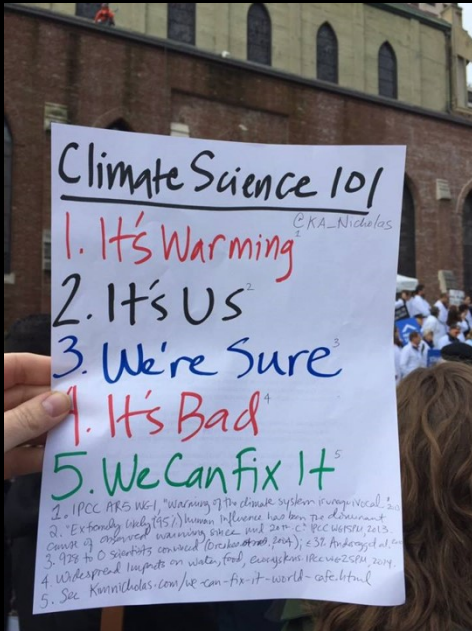 Climate Science 101
@KA_Nicholas
1. It's Warming1
2. It's Us2
3. We're Sure3
4. It's Bad4
5. We Can Fix It5
1. IPCC AR5 WG1, "Warming of the climate system is unequivocal."
2. "Extremely likely (95%) human influence has been the dominant
cause of observed warming since mid 20th C" IPCC WG1 SPM, 2013.
3. 928 to 0 scientists convinced (Oreskes 2004);
4. Widespread impacts on water, food, ecosystems. IPCC WG2 SPM, 2014.
5. See Kimnicholas.com/we-can-fix-it-world-cafe.html